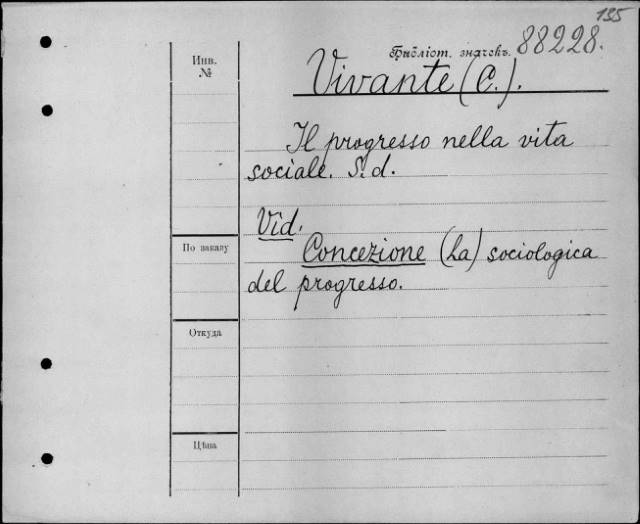 135
Библіот. значекъ. 88228.
Инв.
№
Vivante (C.).
Il progresso nella vita
sociale. S. d.
Vid.
По заказу
Concezione (La) sociologica
del progresso.
Откуда
Цѣна